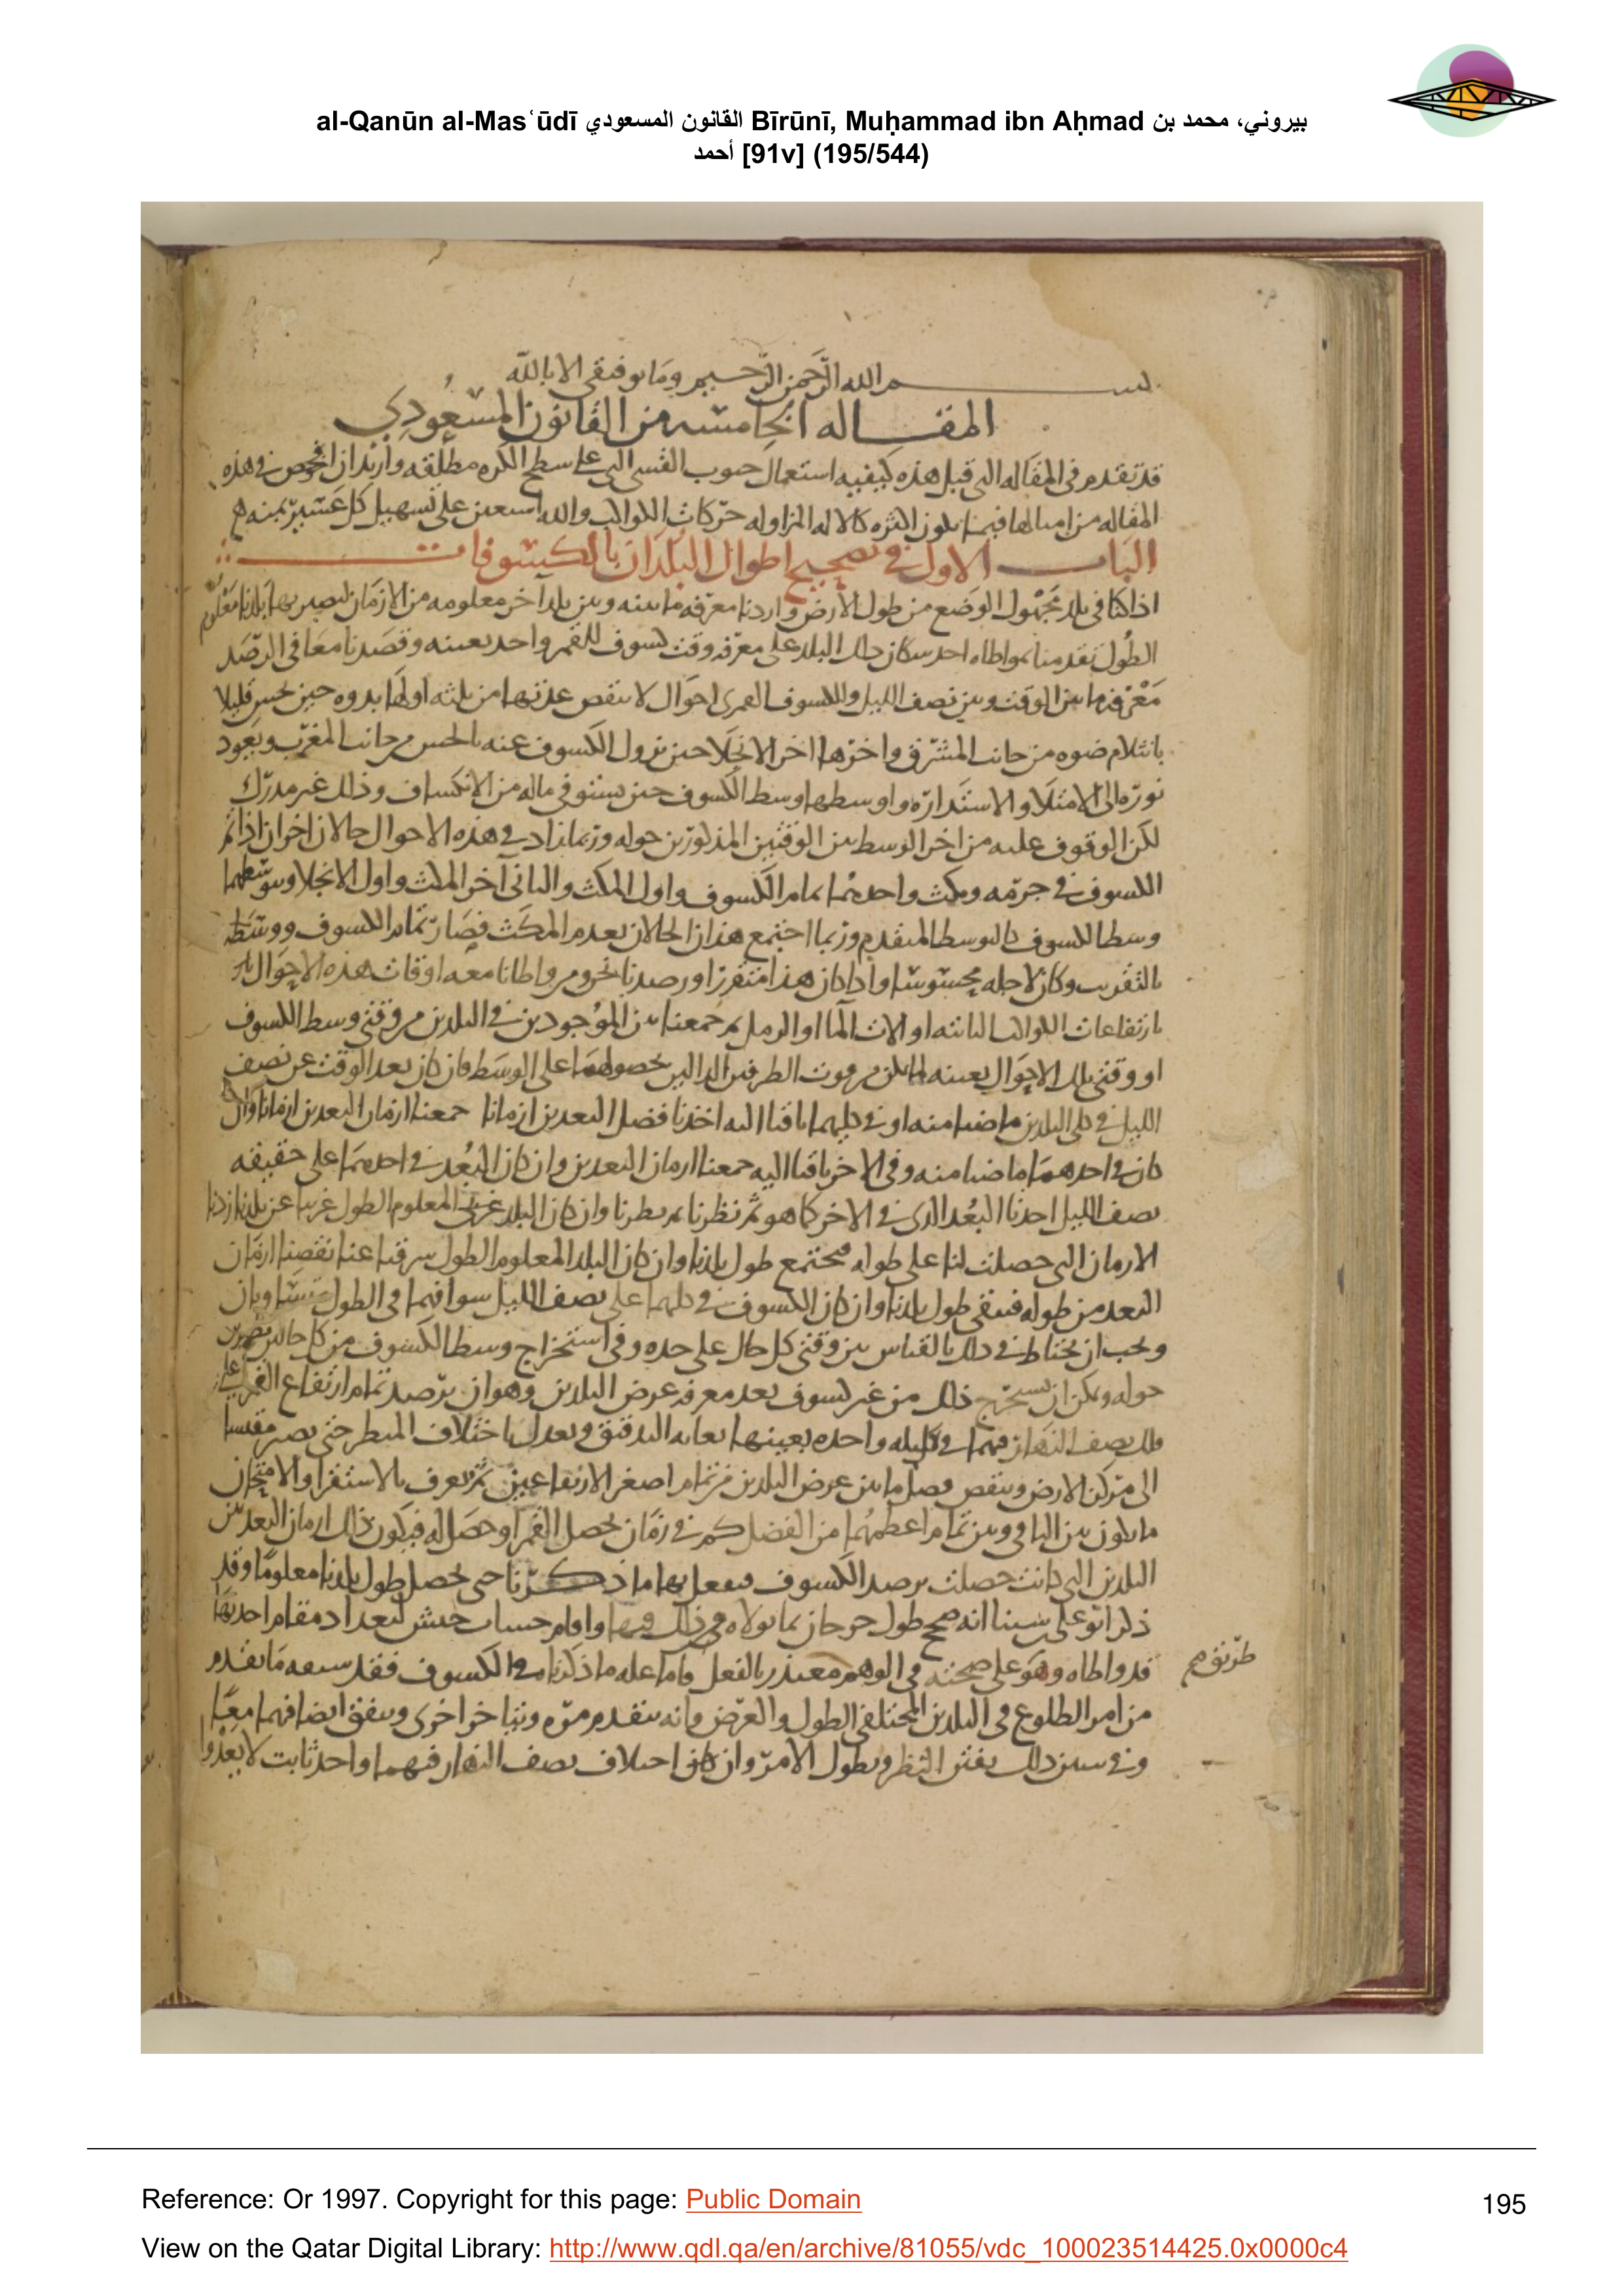 al-Qanūn al-Masʿūdī القانون المسعودي Bīrūnī, Muḥammad ibn Aḥmad بيروني، محمد بن
أحمد [91v] (195/544)
بسم الله الرحمن الرحيم وما توفيقي الا بالله
المقاله الخامسه من القانون المسعودي
قد تقدم في المقاله التي قبل هذه كيفيه استعمال جيوب القسي التي على سطح الكره مطلقه واريد ان افحص في هذه
المقاله من امثالها فيما يكون الكره كالاله لمزاوله حركات الكواكب والله استعين على تسهيل كل عسير بمنه
الباب الاول في تصحيح اطوال البلدان بالكسوفات
اذا كنا في بلد مجهول الوضع من طول الارض واردنا معرفه ما بينه وبين بلد اخر معلومه من الازمان ليصير بها بلدنا معلوم
الطول تقدمنا بمواطاه احد سكان ذلك البلد على معرفه وقت كسوف للقمر واحد بعينه وقصدنا معا في الرصد
معرفه ما بين الوقت وبين نصف الليل وللكسوف القمري احوال لا ينقص عدتها من ثلثه اولها بدوه حين يحس قليلا
بانثلام ضوه من جانب المشرق واخرها اخر الانجلا حين يزول الكسوف عنه بالحس من جانب المغرب ويعود
نوره الى الامتلا والاستداره واوسطها وسط الكسوف حين يستوفي ماله من الانكساف وذلك غير مدرك
لكن الوقوف عليه من اخر الوسط بين الوقتين المذكورين حوله وربما زاد في هذه الاحوال حالان اخران اذا تم
الكسوف في جرمه ومكث واحدهما تمام الكسوف واول المكث والثاني آخر المكث واول الانجلا ويتوسطهما
وسط الكسوف كالتوسط المتقدم وربما اجتمع هذان الحالان بعدم المكث فصار تمام الكسوف ووسطه
بالتقريب وكان لاجله محسوسا واذا كان هذا متقررا ورصدنا نحن ومن واطانا معه اوقات هذه الاحوال
بارتفاعات الكواكب الثابته او الات الما او الرمل ثم جمعنا بين الموجودين في البلدين من وقتي وسط الكسوف
او وقتي تلك الاحوال بعينه لم يكن من فوت الطرفين الدالين بحصولهما على الوسط فان كان بعد الوقت عن نصف
الليل في كلي البلدين ماضيا منه او في كليهما باقيا اليه اخذنا فضل البعدين ازمانا جمعنا ازمان البعدين ازمانا وان
كان في احدهما ماضيا منه وفي الاخر باقيا اليه جمعنا ازمان البعدين وان كان البعد في احدهما على حقيقه
نصف الليل اخذنا البعد الذي في الاخر كما هو ثم نظرنا وان كان البلد المعلوم الطول غربيا عن بلدنا زدنا
الازمان التي حصلت لنا على طوله فيجتمع طول بلدنا وان كان البلد المعلوم الطول شرقيا عنا نقصنا ازمان
البعد من طوله فيبقى طول بلدنا وان كان الكسوف في كليهما على نصف الليل سوا فهما في الطول متساويان
ويجب ان يحتاط في ذلك بالقياس بين وقتي كل حال على حده وفي استخراج وسط الكسوف من كل حالين
حوله ويمكن ان نستخرج ذلك من غير كسوف بعد معرفه عرض البلدين وهو ان يرصد تمام ارتفاع القمر على
فلك نصف النهار فيهما في ليله واحده بعينها بغايه التدقيق ويعدل باختلاف المنظر حتى يصير مقيسا
الى مركز الارض وينقص فضل ما بين عرض البلدين من تمام اصغر الارتفاعين ثم يعرف بالاستقرا والامتحان
ما يكون بين الباقي وبين تمام اعظمهما من الفضل كم في زمان يحصل القمر او حصل له فيكون ذلك ازمان البعد بين
البلدين التي كانت حصلت برصد الكسوف فيعمل بها ما ذكرنا حتى يحصل طول بلدنا معلوما وقد
ذكر ابو علي سينا انه صحح طول جرجان بما تولاه من ذلك فيها واقام حساب حبش لبغداد مقام احد
قد واطاه وهو على صحته في الوهم متعذر بالفعل واما عله ما ذكرنا في الكسوف فقد سبقه ما تقدم
من امر الطلوع في البلدين المختلفي الطول والعرض وانه يتقدم مره ويتاخر اخرى ويتفق ايضا فيهما معا
وفي سنن ذلك يفتن النظر ويطول الامر وان كان اختلاف نصف النهار فيهما واحد ثابت لا يعدوا
Reference: Or 1997. Copyright for this page: Public Domain
195
View on the Qatar Digital Library: http://www.qdl.qa/en/archive/81055/vdc_100023514425.0x0000c4